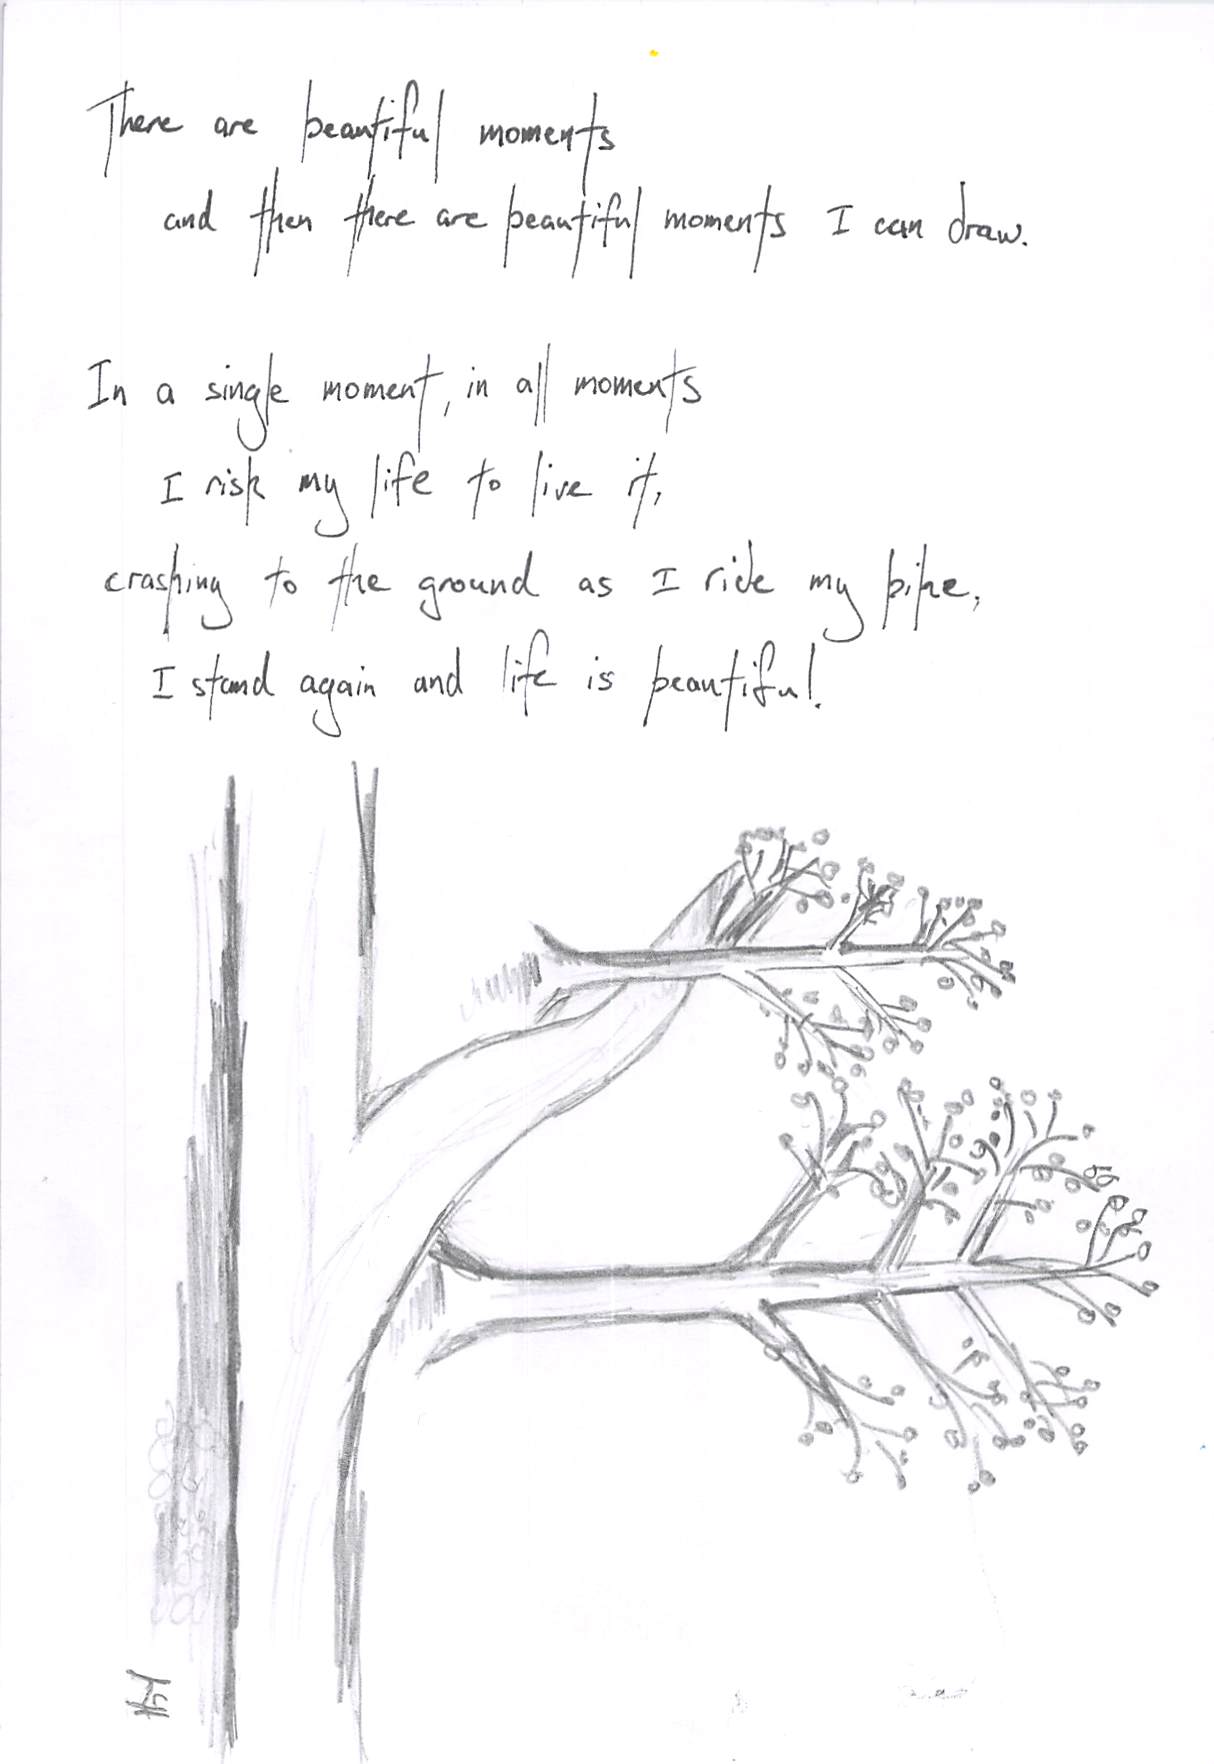 There are beautiful moments
and then there are beautiful moments I can draw.
In a single moment, in all moments
I risk my life to live it,
crashing to the ground as I ride my bike,
I stand again and life is beautiful.